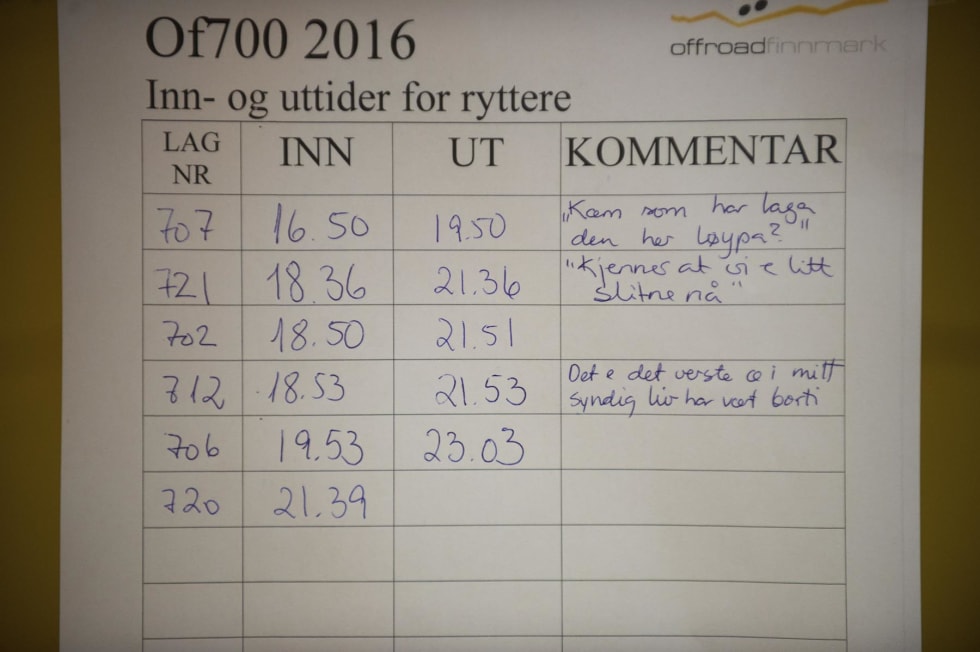 Of700 2016
offroadfinnmark
Inn- og uttider for ryttere
LAG NR INN UT KOMMENTAR
707 16.50 19.50 „Kæm som har laga
den her løypa?"
721 18.36 21.36 "Kjennes at vi e litt
slitne nå"
702 18.50 21.51
712 18.53 21.53 Det e det verste æ i mitt
syndig liv har vært borti
706 19.53 23.03
720 21.39